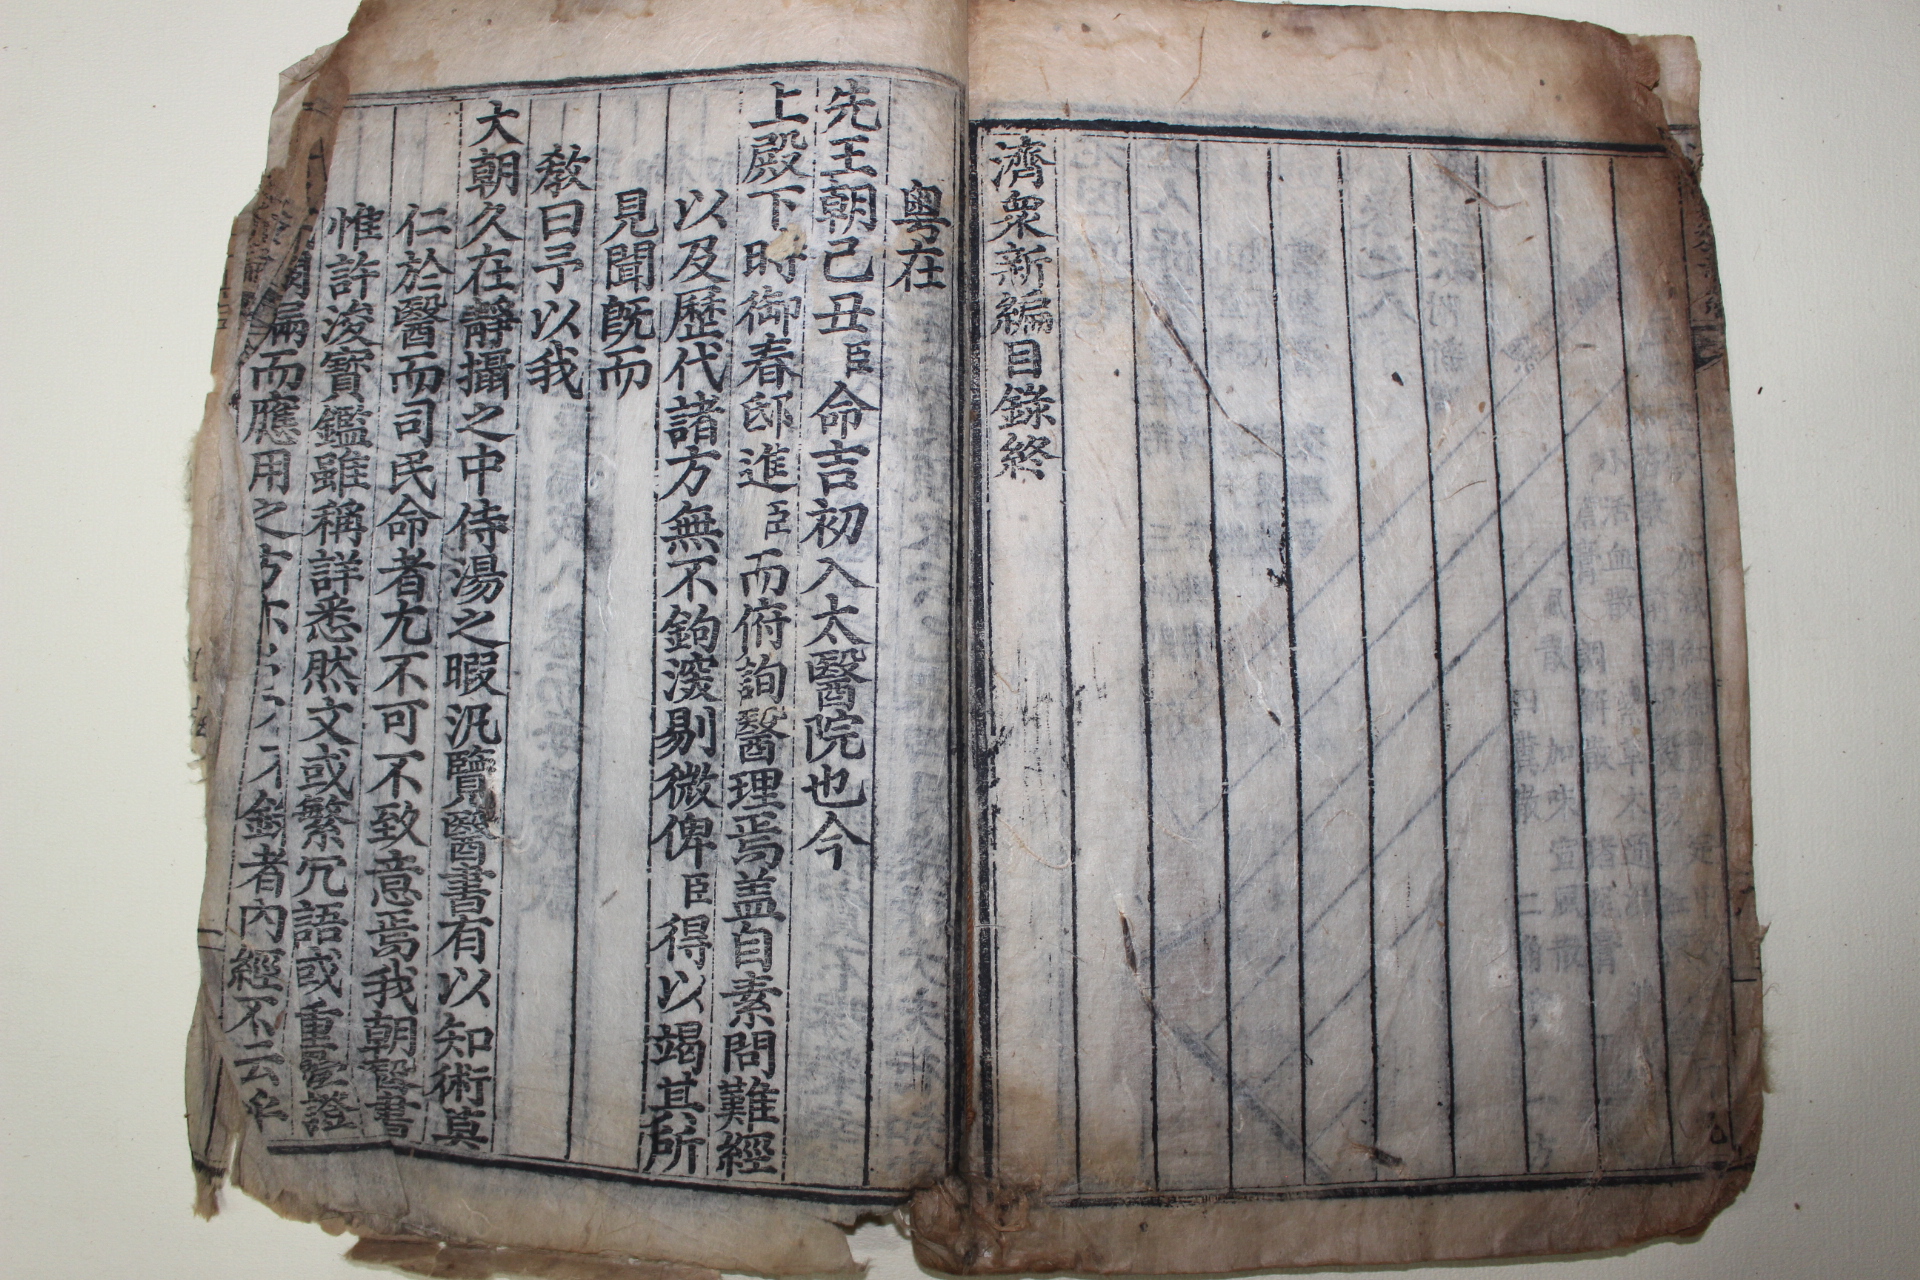 濟衆新編目錄終
粵在
先王朝己丑臣命吉初入太醫院也今
上殿下時御春邸進臣而俯詢醫理焉盖自素問難經
以及歷代諸方無不鉤深剔微俾臣得以竭其所
見聞旣而
敎曰予以我
大朝久在靜攝之中侍湯之暇汎覽醫書有以知術莫
仁於醫而司民命者尤不可不致意焉我朝醫書
惟許浚寶鑑雖稱詳悉然文或繁冗語或重疊證
而應用之方亦 者內經不云乎